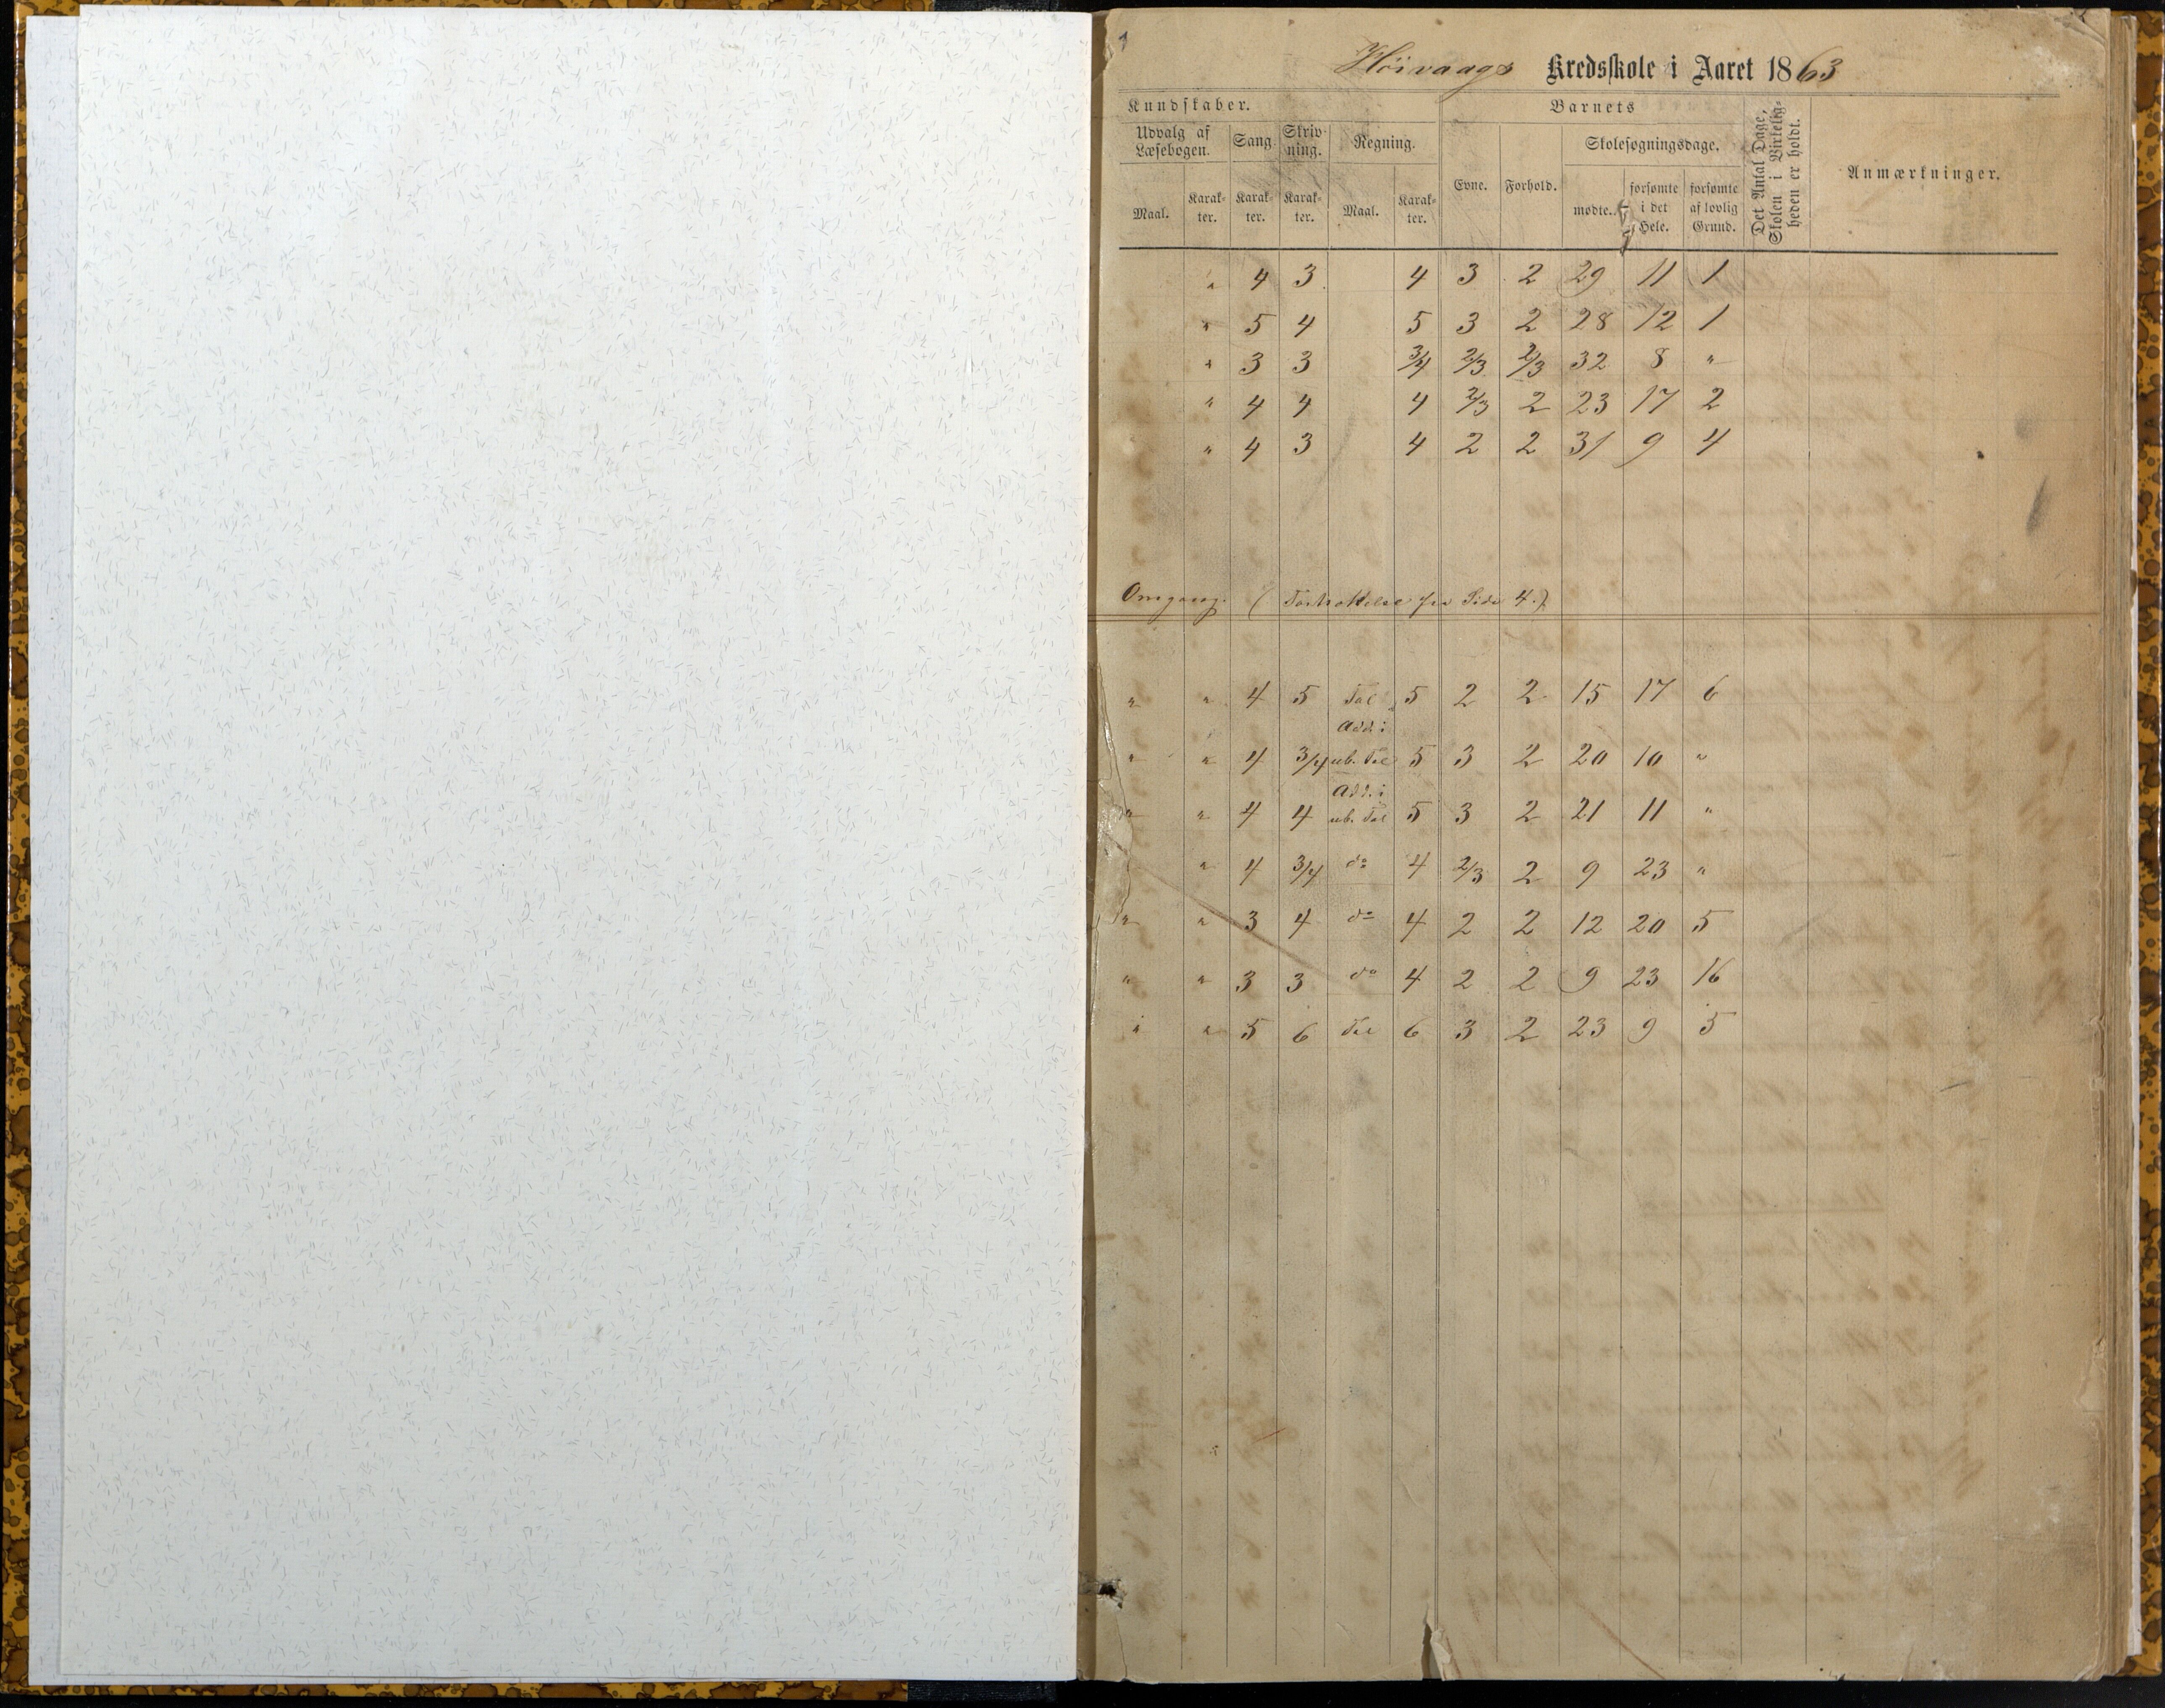 1
Höivaags Kredsskole i Aaret 1863
Kundskaber. Barnets Det Antal Dage, Skolen i Virkeligheden er holdt. Anmærkninger.
Udvalg af Læsebogen. Sang Skrivning. Regning. Evne. Forhold. Skolesøgningsdage.
Maal. Karakter. Karakter. Karakter. Maal. Karakter. mødte. forsømte i det Hele. forsømte af lovlig Grund.
" 4 3 4 3 2 29 11 1
" 5 4 5 3 2 28 12 1
" 3 3 3/4 2/3 2/3 32 8 "
" 4 4 4 2/3 2 23 17 2
" 4 3 4 2 2 31 9 4
Omgang. (Fortsættelse fra Side 4.)
" " 4 5 Tal 5 2 2 15 17 6
" " 4 3/4 Add. i ub. Tal 5 3 2 20 10 "
" " 4 4 Add. i ub. Tal 5 3 2 21 11 "
" 4 3/4 do 4 2/3 2 9 23 "
" " 3 4 do 4 2 2 12 20 5
" " 3 3 do 4 2 2 9 23 16
" " 5 6 Tal 6 3 2 23 9 5